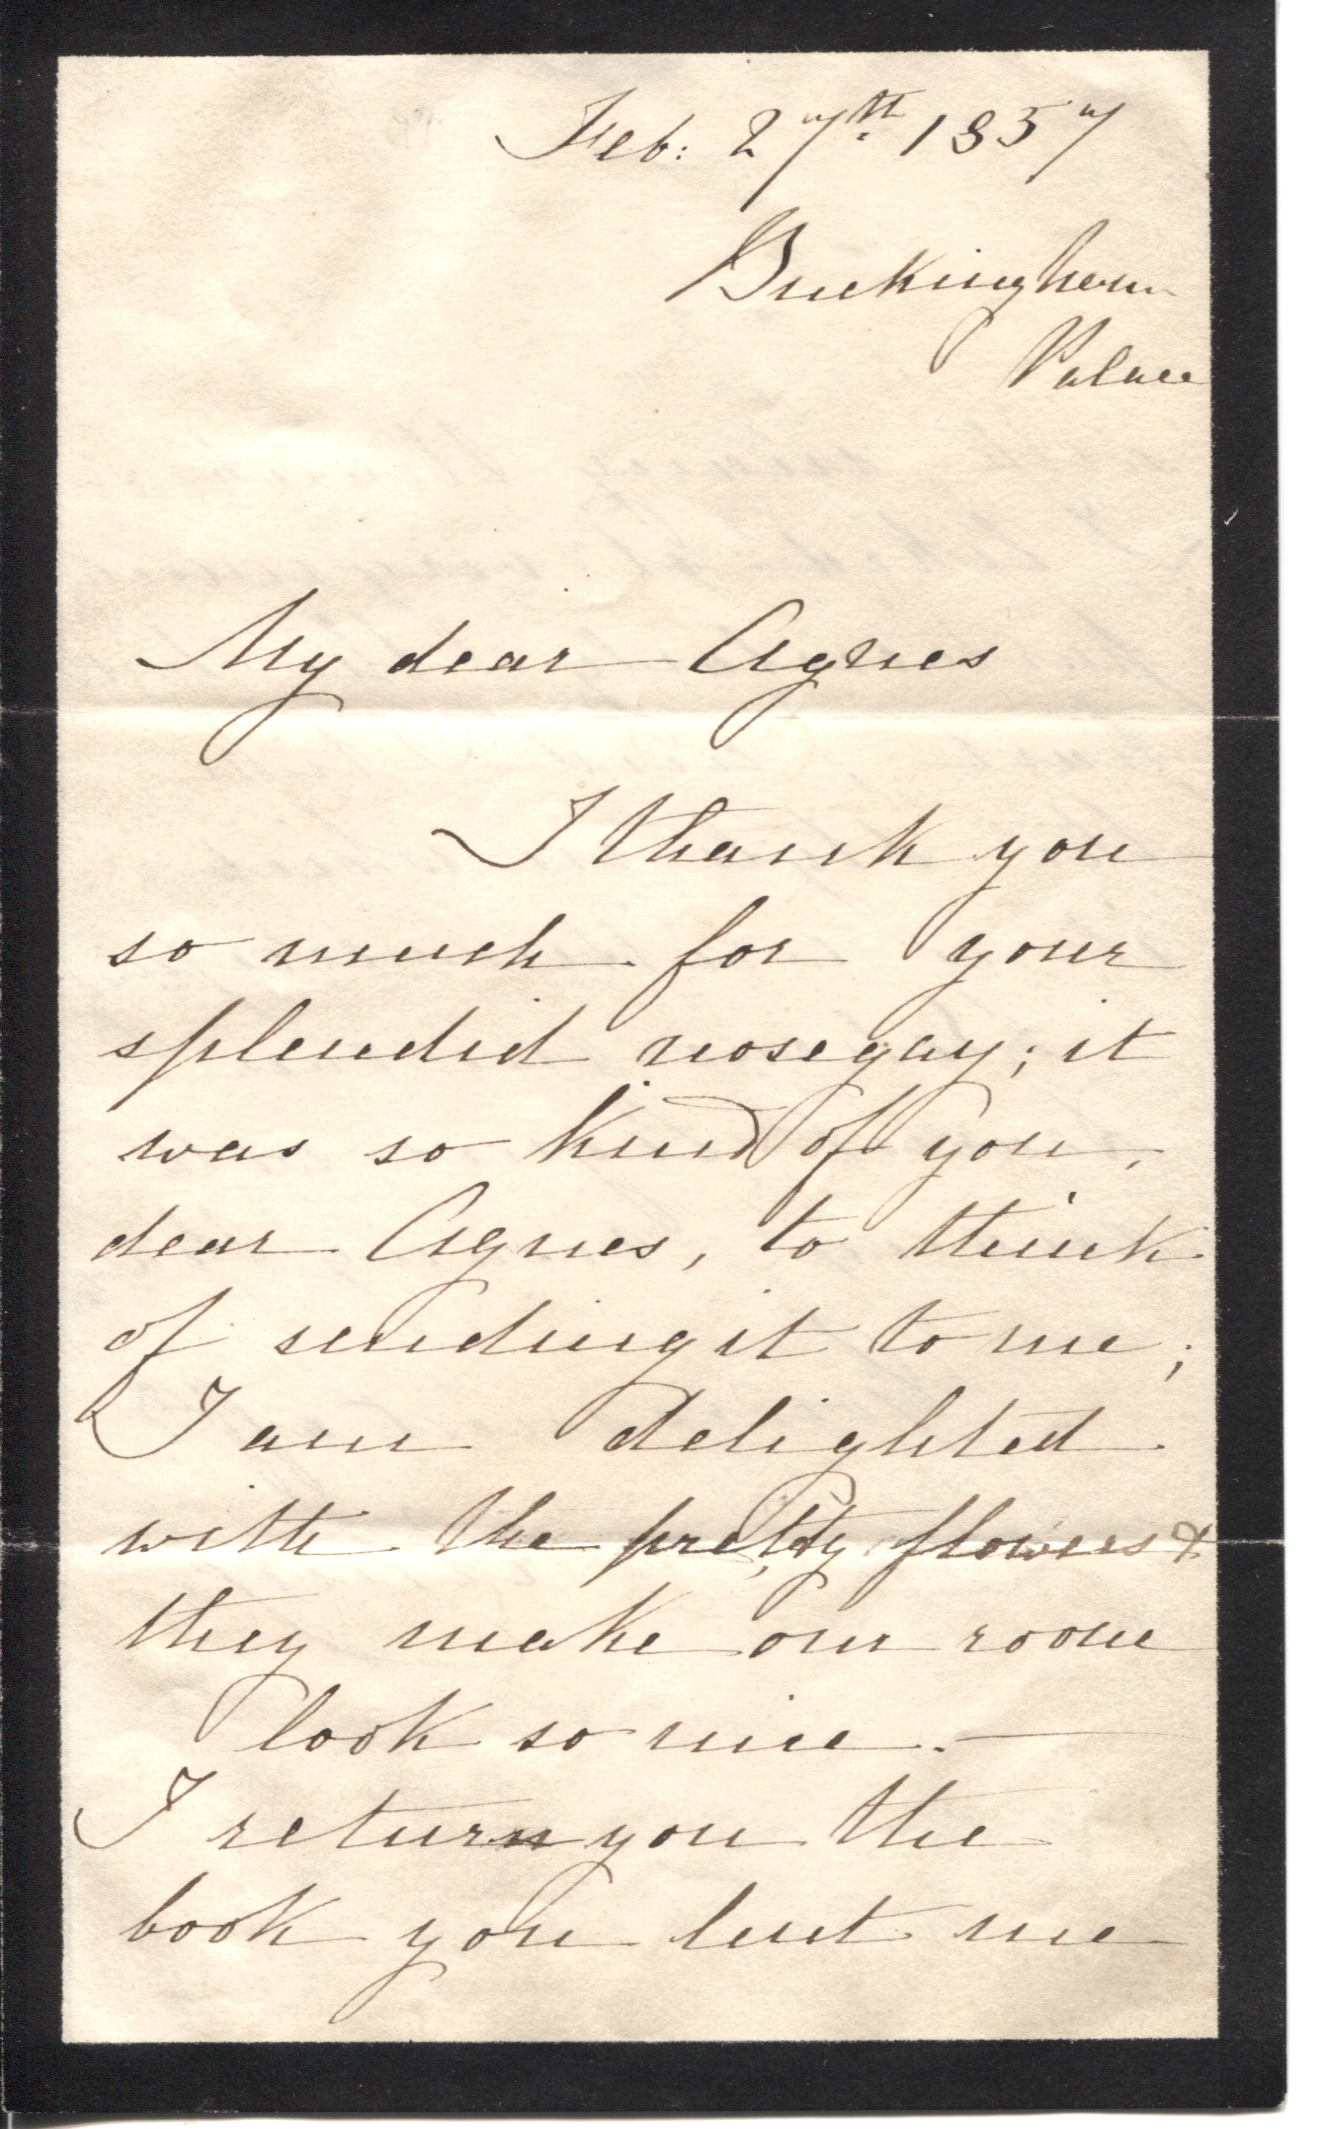 Feb: 27th 1857
Buckingham
Palace
My dear Agnes
I thank you
so much for your
splendid nosegay; it
was so kind of you,
dear Agnes, to think
of sending it to me;
I am delighted
with the pretty flowers &
they make our room
look so nice. —
I return you the
book you lent me